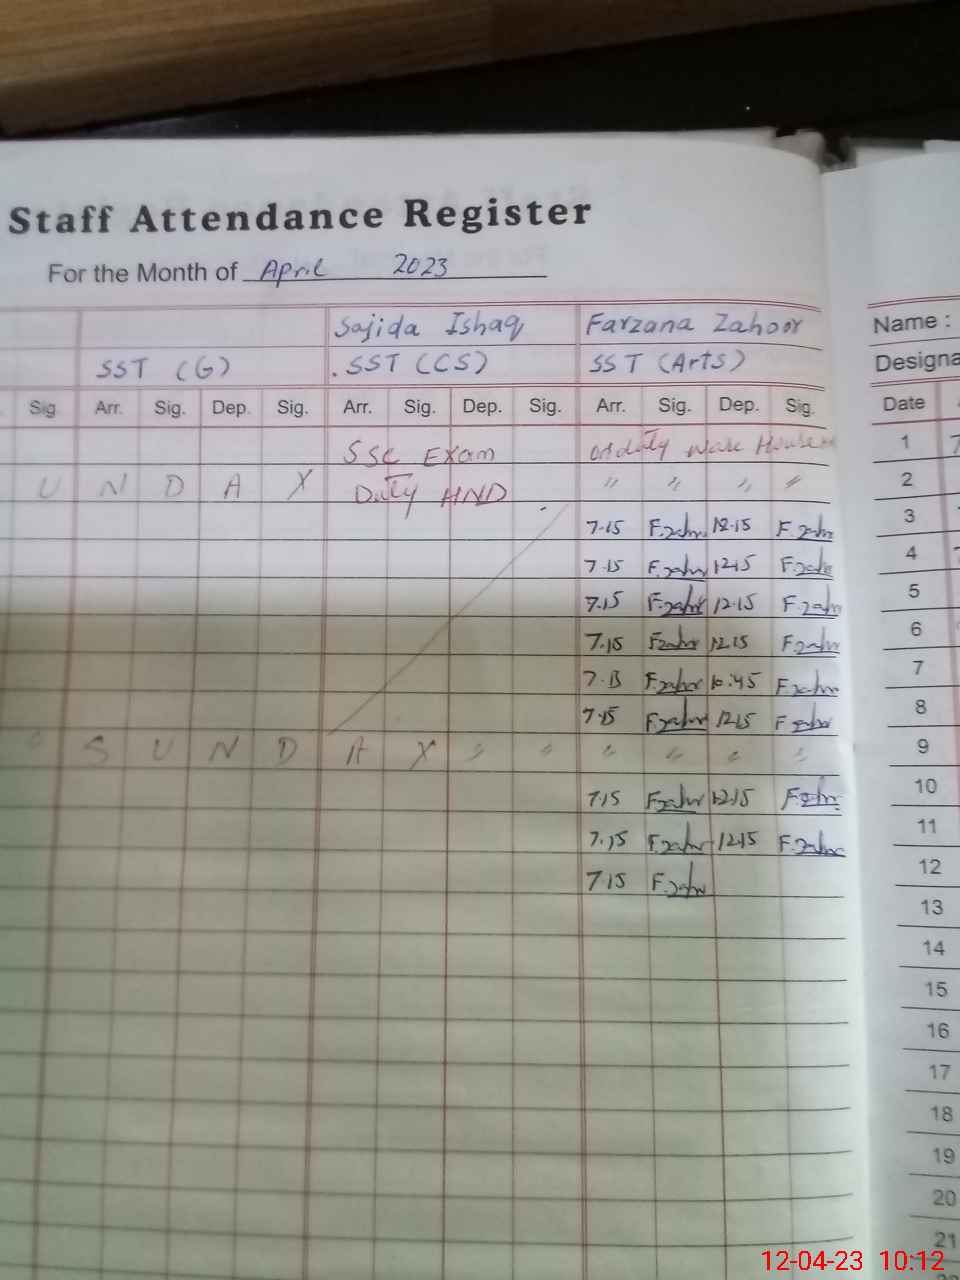 Staff Attendance Register
For the Month of April 2023
Sajida Ishaq Farzana Zahoor Name :
SST (G) . SST (CS) SST (Arts) Designa
Sig Arr. Sig. Dep. Sig. Arr. Sig. Dep. Sig. Arr. Sig. Dep. Sig. Date
SSC Exam on duty Ware House 1
U N D A Y Duty HND " " " " 2
7.15 F.zahr 12.15 F.zahr 3
7.15 F.zahr 12.15 F.zahr 4
7.15 F.zahr 12.15 F.zahr 5
7.15 F.zahr 12.15 F.zahr 6
F.zahr 10:45 F.zahr 7
7.15 F.zahr 12.15 F.zahr 8
S U N D A Y " " " " " " 9
7.15 F.zahr 12.15 F.zahr 10
7.15 F.zahr 12.15 F.zahr 11
7.15 F.zahr 12
13
14
15
16
17
18
19
20
21
12-04-23 10:12